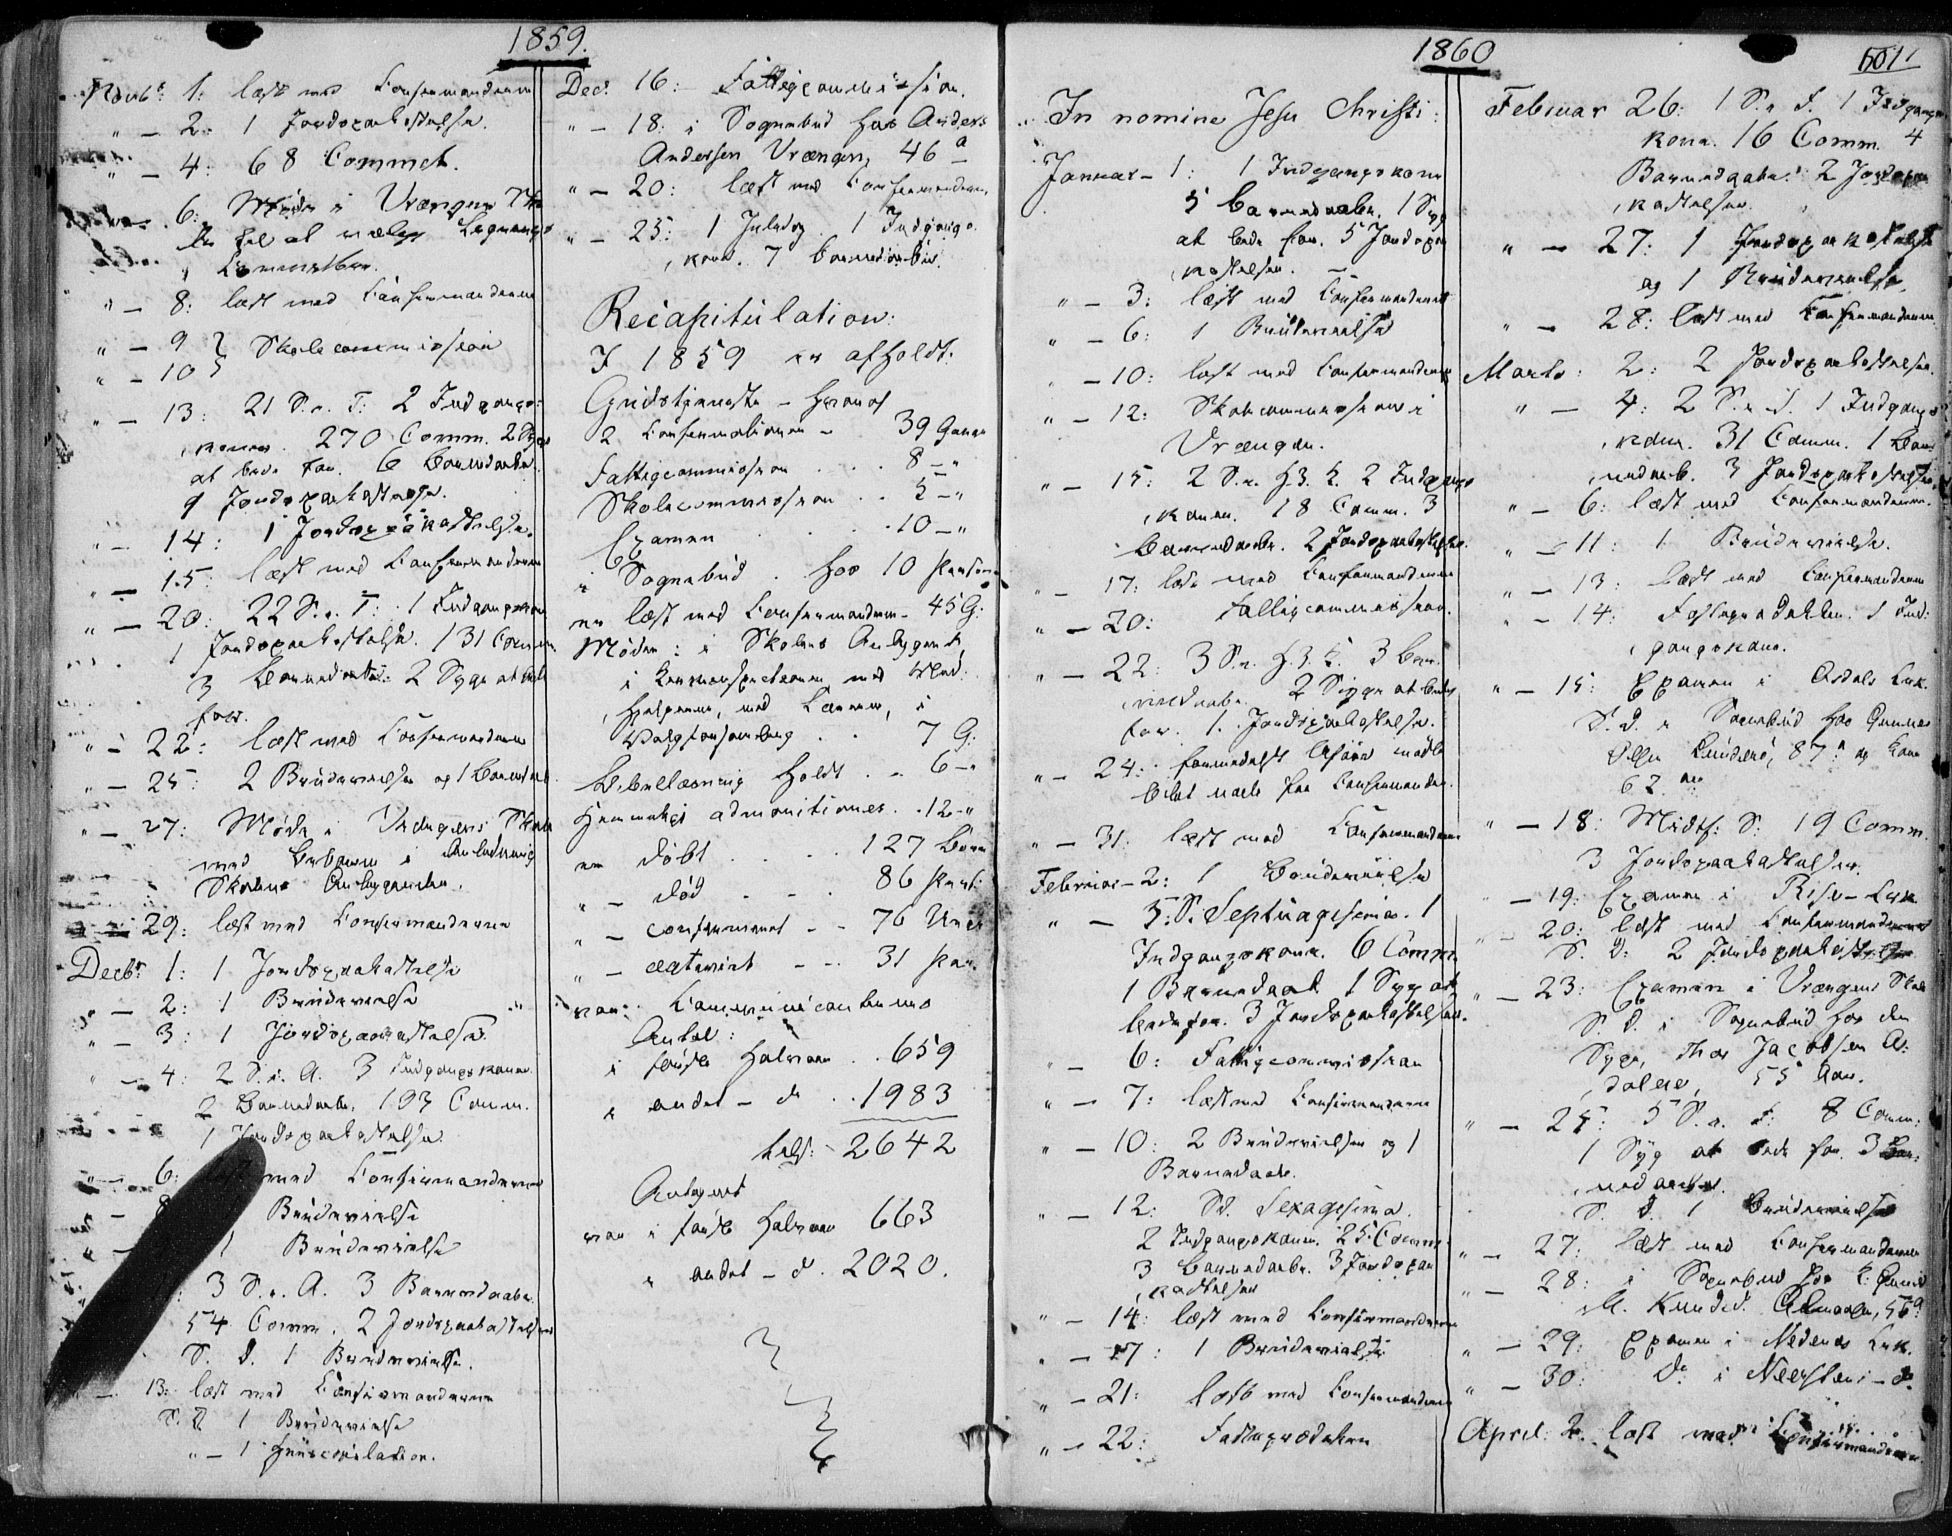 1859.
Novbr. 1: læst med Confirmanderne
" – 2: 1 Jordspaakastelse.
" – 4: 68 Commct.
6: Møde i Vrængens
til at vælge Lignings
Commission.
" – 8: læst med Confirmanderne
" – 9 } Skolecommission
" – 10 }
" – 13: 21 S. e. T. 2 Indgangs-
koner. 270 Comm. 2 Syge
at bede for. 6 Barnedaabe.
9 Jordspaakastelser.
" – 14: 1 Jordspaakastelse.
" – 15: læst med Confirmanderne
" – 20: 22 S. e. T. 1 Indgangskone
1 Jordspaakastelse. 131 Comm.
3 Barnedaabe. 2 Syge at bede
for.
" – 22: læst med Confirmanderne
" – 25: 2 Brudevielse og 1 Barnedaab
" – 27: Møde i Vrængens Skole
med i Anledning
Skolens
29: læst med Confirmanderne
Decbr. 1: 1 Jordspaakastelse
" – 2: 1 Brudevielse
" – 3: 1 Jordspaakastelse.
" – 4: 2 S. i. A. 3 Indgangskoner.
2 Barnedaabe, 193 Comm.
1 Jordspaakastelse.
" – 6: med Confirmanderne
Brudevielse
1 Brudevielse
3 S. i. A. 3 Barnedaabe
54 Comm. 2 Jordspaakastelser
S. D. 1 Brudevielse.
– 13: læst med Confirmanderne
S. D. 1 Brudevielse
" – 1 Huuscopulation.
Decr. 16: Fattigcommission.
" – 18: i Sognebud hos Anders
Andersen Vrængen, 46 a
" – 20: læst med Confirmanderne
" – 25: 1 Juledag. 1 Indgangs-
kone. 7 Barnedaabe.
Recapitulation:
I 1859 er afholdt:
Gudstjeneste – hvoraf
2 Confirmationer – 39 Gange
Fattigcommission . . . 8 – "
Skolecommission . . 5 – "
Examen . . . . 10 – "
i Sognebud . hos 10 Personer
er læst med Confirmanderne – 45 G.
Møder: i Skolens
med
med Lærerne, i
Valgforsamling . . 7 G.
Bibellæsning holdt . . 6 – "
Hemmelige admonitioner . . 12 – "
er døbt . . . . 127 Børn
" – død . . . . 86 Pers.
" – confirmeret – – 76 Unge
" – copuleret – – 31 Par.
var: Communicanternes
Antal:
i første Halvaar . . 659
i andet – d . . 1983
tils: 2642
Antegnet
var i første Halvaar 663
i andet – d. 2020.
1860
601
In nomine Jesu Christi:
Januar – 1: 1 Indgangskone
5 Barnedaabe. 1 Syg
at bede for. 5 Jordspaa-
kastelser. –
" – 3: læst med Confirmanderne
" – 6: 1 Brudevielse
" – 10: læst med Confirmanderne
" – 12: Skolecommission i
Vrængen.
" – 15: 2 S. e. H. 3 K. 2 Indgangs-
koner. 18 Comm. 3
Barnedaabe. 2 Jordspaakastelser.
" – 17: læst med Confirmanderne
" – 20: Fattigcommission.
" – 22: 3 S. e. H. 3 K. 3 Bar-
nedaabe. 2 Syge at bede
for. 1 Jordspaakastelse.
" – 24: formedelst Uføre mødte
blot nogle faa Confirmander.
" – 31: læst med Confirmanderne
Februar – 2: 1 Brudevielse
" – 5: S. Septuagesima. 1
Indgangskone. 6 Comm.
1 Barnedaab 1 Syg at
bede for. 3 Jordspaakastelser.
" – 6: Fattigcommission
" – 7: læst med Confirmanderne
" – 10: 2 Brudevielser og 1
Barnedaab.
" – 12: Sd. Sexagesima.
2 Indgangskoner. 25 Comm.
3 Barnedaabe. 3 Jordspaa-
kastelser
" – 14: læst med Confirmanderne
" – 17: 1 Brudevielse
" – 21: læst med Confirmanderne
" – 22: Fasteprædiken
Februar 26: 1 S. e. F. 1 Indgangs-
kone. 16 Comm. 4
Barnedaabe. 2 Jordspaa-
kastelser.
" – 27: 1 Jordspaakastelse
og 1 Brudevielse.
" – 28: læst med Confirmanderne
Marts: 2: 2 Jordspaakastelser.
" – 4: 2 S. e. F. 1 Indgangs-
kone. 31 Comm. 1 Bar-
nedaab. 3 Jordspaakastelser.
" – 6: læst med Confirmanderne.
" – 11: 1 Brudevielse.
" – 13: læst med Confirmanderne
" – 14: Fasteprædiken. 1 Ind-
gangskone.
" – 15: Examen i Asdals Erk.
S. D. i Sognebud hos Gunner
87 a og Kone
62 aar
" – 18: Midtf. S. 19 Comm.
3 Jordspaakastelser.
" – 19: Examen i
" – 20: læst med Confirmanderne
S. D. 2 Jordspaakastelser
" – 23: Examen i Vrængens Skole
S. D. i Sognebud hos den
Syge, Thor Jacobsen As-
dalene, 55 Aar.
" – 25: 5 S. e. F. 8 Comm:
1 Syg at bede for. 3 Bar-
nedaabe.
S. D. 1 Brudevielse
" – 27: læst med Confirmanderne
" – 28: i Sognebud hos
" – 29: Examen i Nedenes Erk.
" – 30: Do i – d.
April: 2. læst med Confirmanderne.